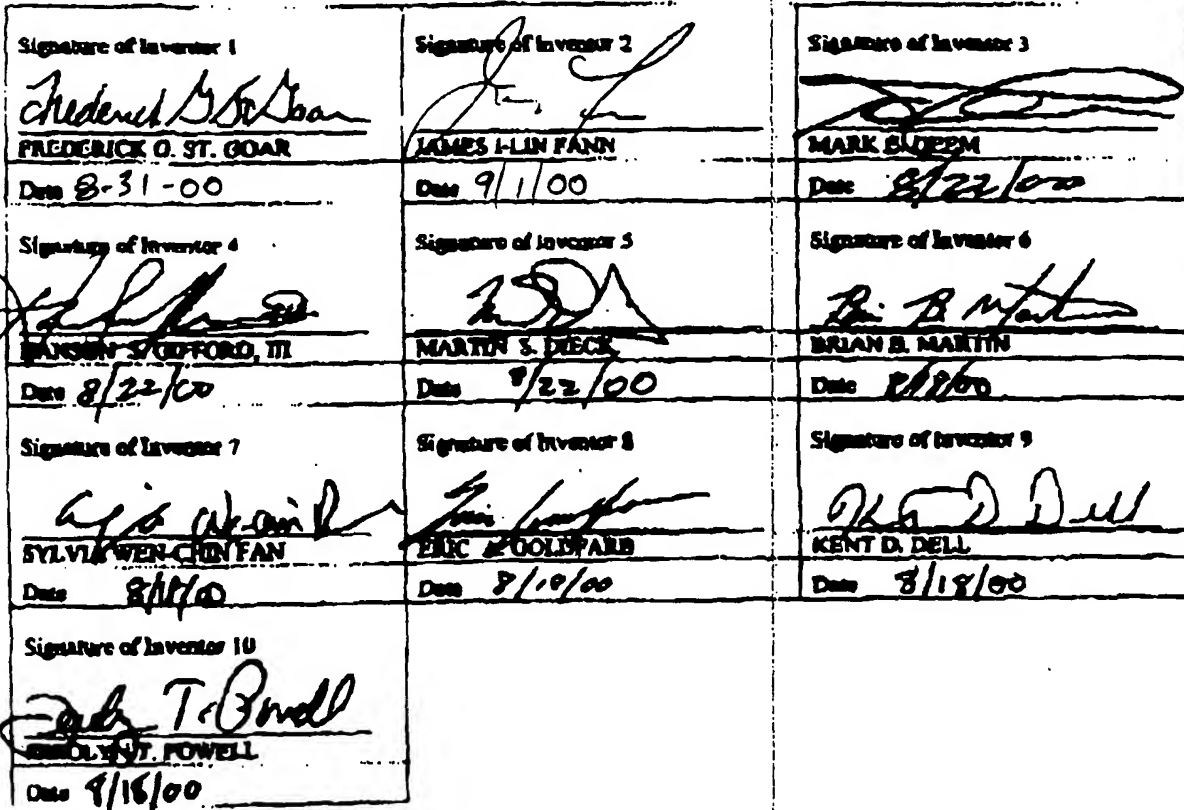 Signature of Inventor 1
Frederick G St. Goar
FREDERICK G. ST. GOAR
Date 8-31-00
Signature of Inventor 2
JAMES I-LIN FANN
Date 9/1/00
Signature of Inventor 3
MARK E. DEEM
Date 8/22/00
Signature of Inventor 4
HANSON S. GIFFORD, III
Date 8/22/00
Signature of Inventor 5
MARTIN S. DIECK
Date 8/22/00
Signature of Inventor 6
Brian B Martin
BRIAN B. MARTIN
Date 8/18/00
Signature of Inventor 7
SYLVIA WEN-CHIN FAN
Date 8/18/00
Signature of Inventor 8
ERIC GOLDFARB
Date 8/18/00
Signature of Inventor 9
Kent D Dell
KENT D. DELL
Date 8/18/00
Signature of Inventor 10
T. Powell
T. POWELL
Date 8/18/00